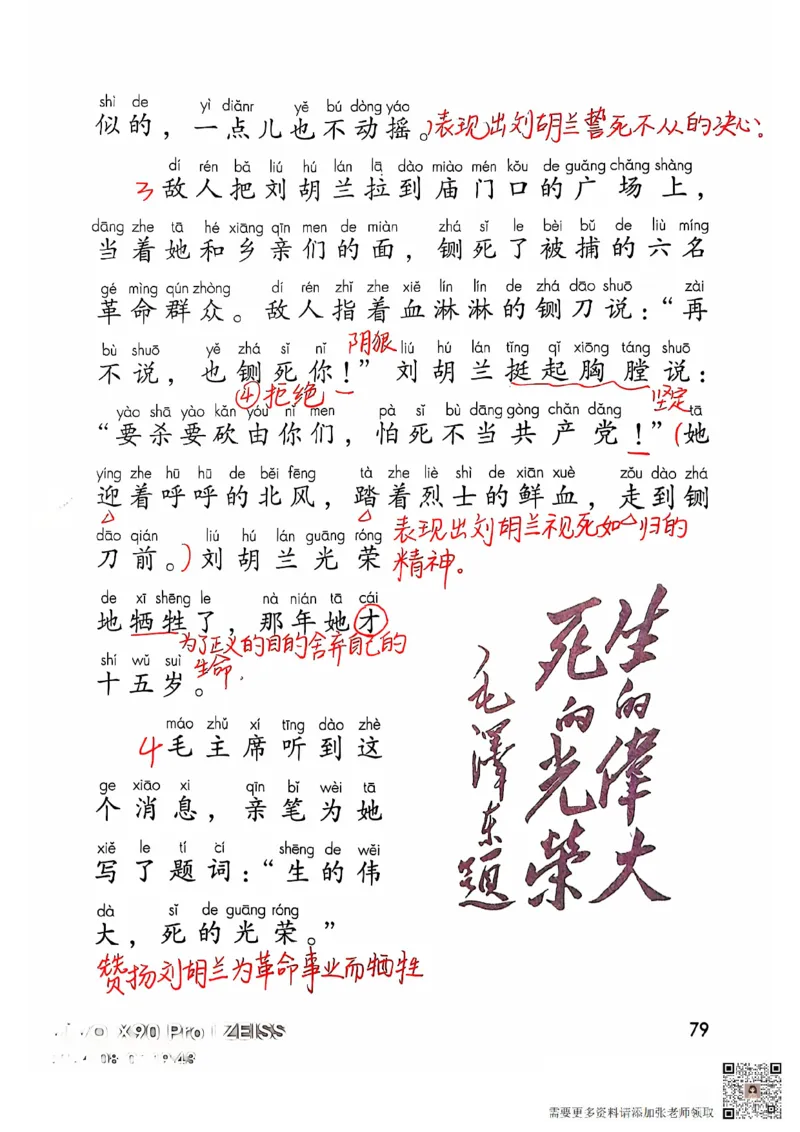 shì de yì diǎnr yě bú dòng yáo
似的，一点儿也不动摇。）表现出刘胡兰誓死不从的决心。
dí rén bǎ liú hú lán lā dào miào mén kǒu de guǎng chǎng shàng
3 敌人把刘胡兰拉到庙门口的广场上，
dāng zhe tā hé xiāng qīn men de miàn zhá sǐ le bèi bǔ de liù míng
当着她和乡亲们的面，铡死了被捕的六名
gé mìng qún zhòng dí rén zhǐ zhe xiě lín lín de zhá dāo shuō zài
革命群众。敌人指着血淋淋的铡刀说：“再
bù shuō yě zhá sǐ nǐ 阴狠 liú hú lán tǐng qǐ xiōng táng shuō
不说，也铡死你！”刘胡兰挺起胸膛说：
④拒绝 坚定
yào shā yào kǎn yóu nǐ men pà sǐ bù dāng gòng chǎn dǎng tā
“要杀要砍由你们，怕死不当共产党！”（她
yíng zhe hū hū de běi fēng tà zhe liè shì de xiān xuè zǒu dào zhá
迎着呼呼的北风，踏着烈士的鲜血，走到铡
dāo qián liú hú lán guāng róng
刀前。）刘胡兰光荣
表现出刘胡兰视死如归的
精神。
de xī shēng le nà nián tā cái
地牺牲了，那年她才
为了正义的目的舍弃自己的
生命
shí wǔ suì
十五岁。
máo zhǔ xí tīng dào zhè
4 毛主席听到这
ge xiāo xi qīn bǐ wèi tā
个消息，亲笔为她
xiě le tí cí shēng de wěi
写了题词：“生的伟
dà sǐ de guāng róng
大，死的光荣。”
赞扬刘胡兰为革命事业而牺牲
生的偉大
死的光榮
毛澤东題
X90 Pro | ZEISS
79
需要更多资料请添加张老师领取